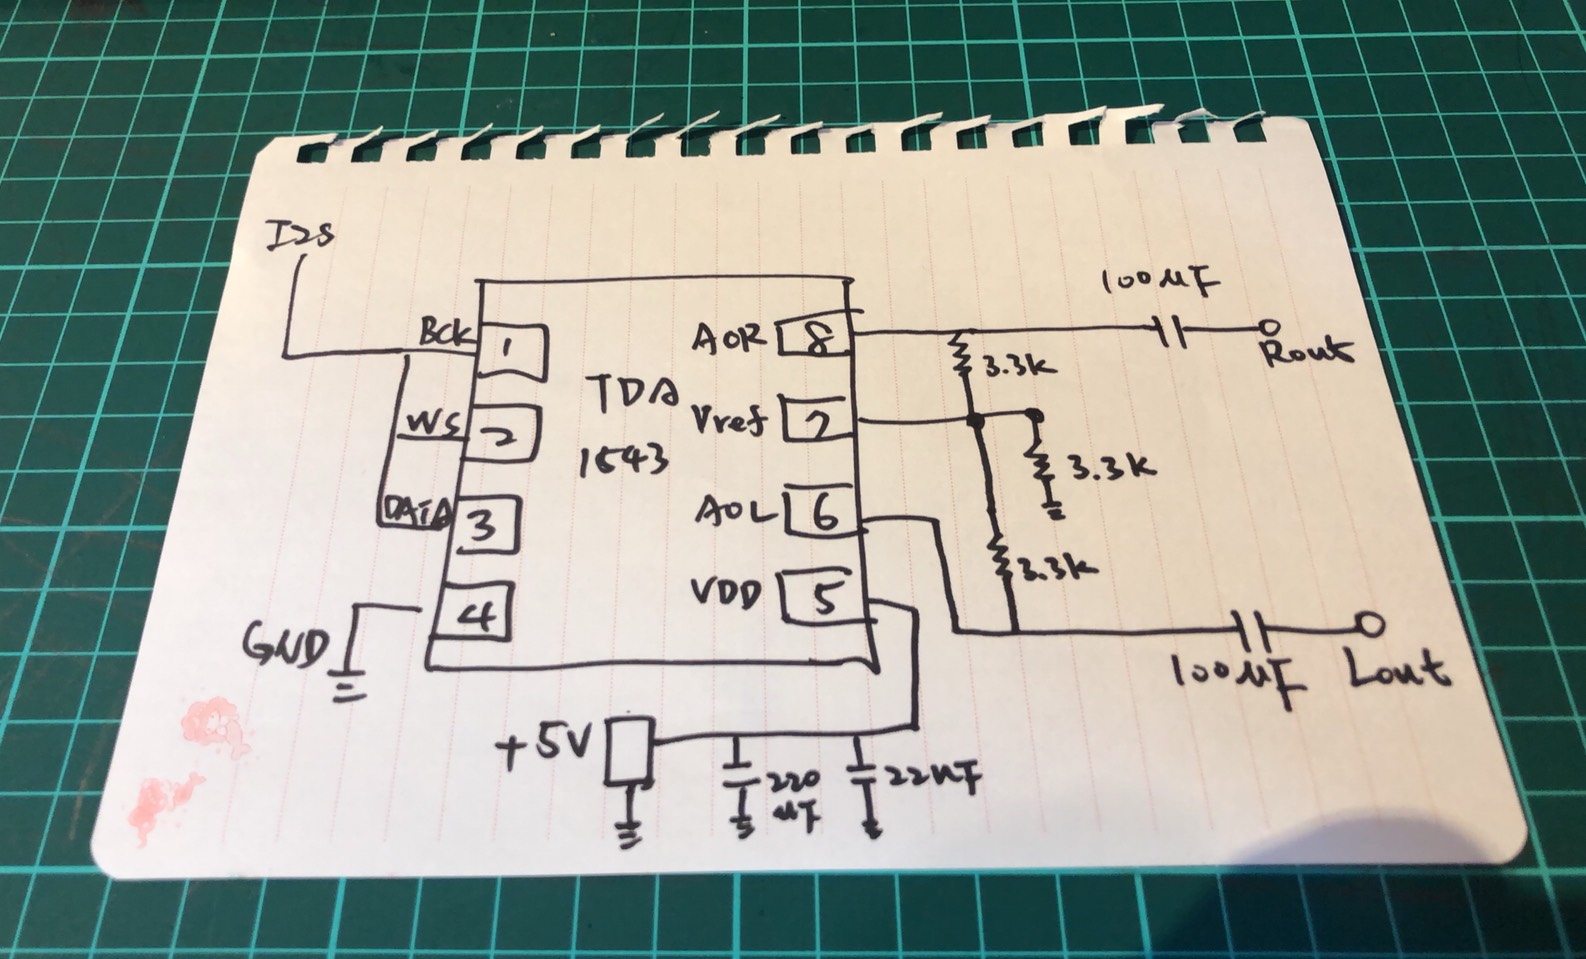 I2S
100μF
BCK
1
AOR
8
Rout
3.3K
TDA
1543
WS
2
Vref
7
3.3K
DATA
3
AOL
6
3.3K
4
VDD
5
GND
100μF
Lout
+5V
220
μF
22nF